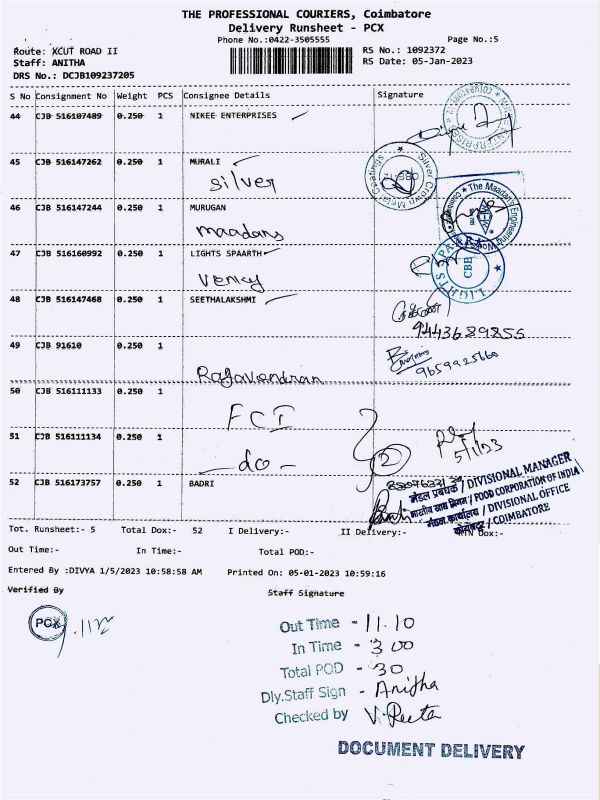 THE PROFESSIONAL COURIERS, Coimbatore
Delivery Runsheet - PCX
Phone No.:0422-3505555 Page No.:5
Route: XCUT ROAD II RS No.: 1092372
Staff: ANITHA RS Date: 05-Jan-2023
DRS No.: DCJB109237205
S No Consignment No Weight PCS Consignee Details Signature
44 CJB 516107489 0.250 1 NIKEE ENTERPRISES
45 CJB 516147262 0.250 1 MURALI
Silver
Silver Crown Metal Coatings
46 CJB 516147244 0.250 1 MURUGAN
maadans
The Maadan's Engineering
47 CJB 516160992 0.250 1 LIGHTS SPAARTH
Venky
CBE
48 CJB 516147468 0.250 1 SEETHALAKSHMI
9443689855
49 CJB 91610 0.250 1
9659925660
Ragavendran
50 CJB 516111133 0.250 1
FCI
51 CJB 516111134 0.250 1
- do - 2
5/1/23
52 CJB 516173757 0.250 1 BADRI
मंडल प्रबंधक / DIVISIONAL MANAGER
भारतीय खाद्य निगम / FOOD CORPORATION OF INDIA
मंडल कार्यालय / DIVISIONAL OFFICE
कोयंबटूर / COIMBATORE
Tot. Runsheet:- 5 Total Dox:- 52 I Delivery:- II Delivery:- Dox:-
Out Time:- In Time:- Total POD:-
Entered By :DIVYA 1/5/2023 10:58:58 AM Printed On: 05-01-2023 10:59:16
Verified By Staff Signature
PCX
Out Time - 11.10
In Time - 3 00
Total POD - 30
Dly.Staff Sign - Anitha
Checked by
DOCUMENT DELIVERY